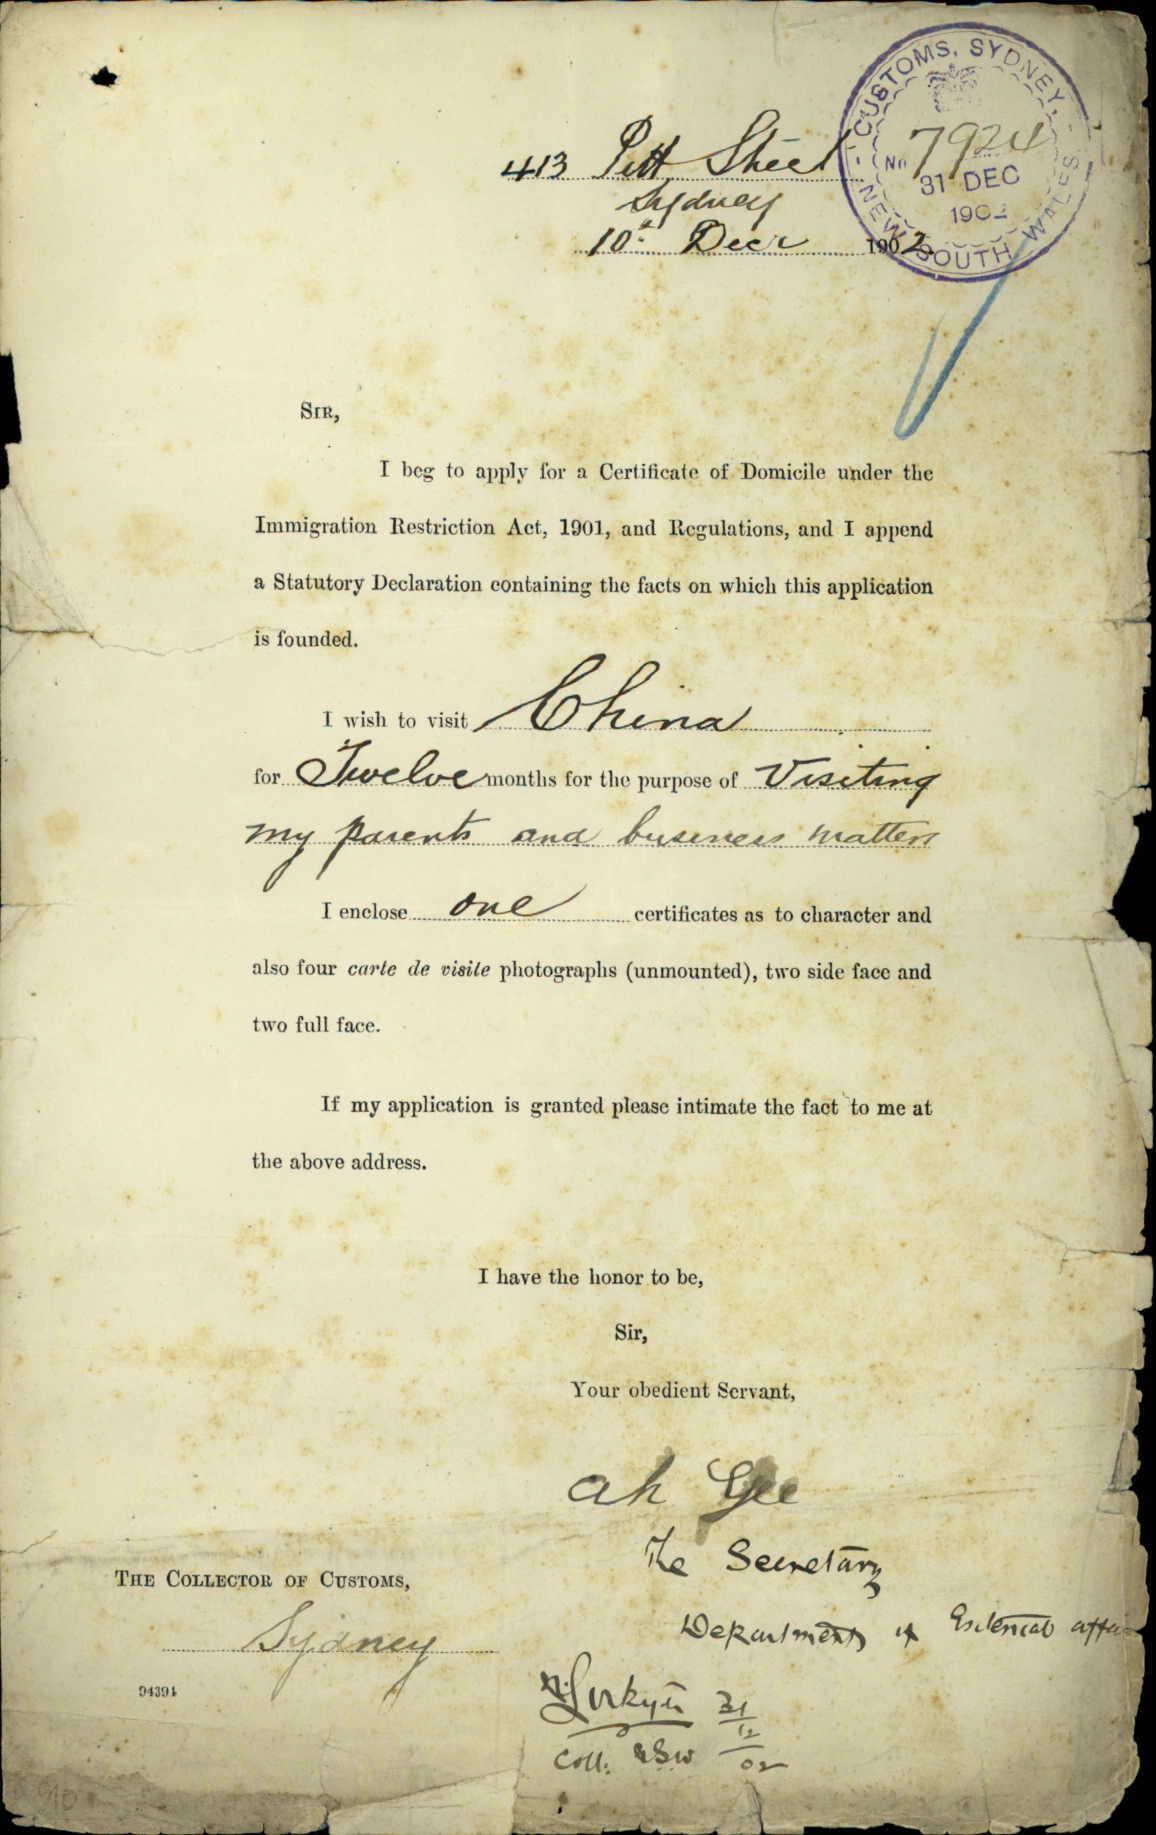 CUSTOMS, SYDNEY,
No 7924
31 DEC
1902
NEW SOUTH WALES
413 Pitt Street
Sydney
10th Decr 1902
SIR,
I beg to apply for a Certificate of Domicile under the
Immigration Restriction Act, 1901, and Regulations, and I append
a Statutory Declaration containing the facts on which this application
is founded.
I wish to visit China
for Twelve months for the purpose of Visiting
my parents and business matters
I enclose one certificates as to character and
also four carte de visite photographs (unmounted), two side face and
two full face.
If my application is granted please intimate the fact to me at
the above address.
I have the honor to be,
Sir,
Your obedient Servant,
Ah Gee
The Secretary
THE COLLECTOR OF CUSTOMS,
Department of External affai
Sydney
94394
31/12/02
Coll: NSW